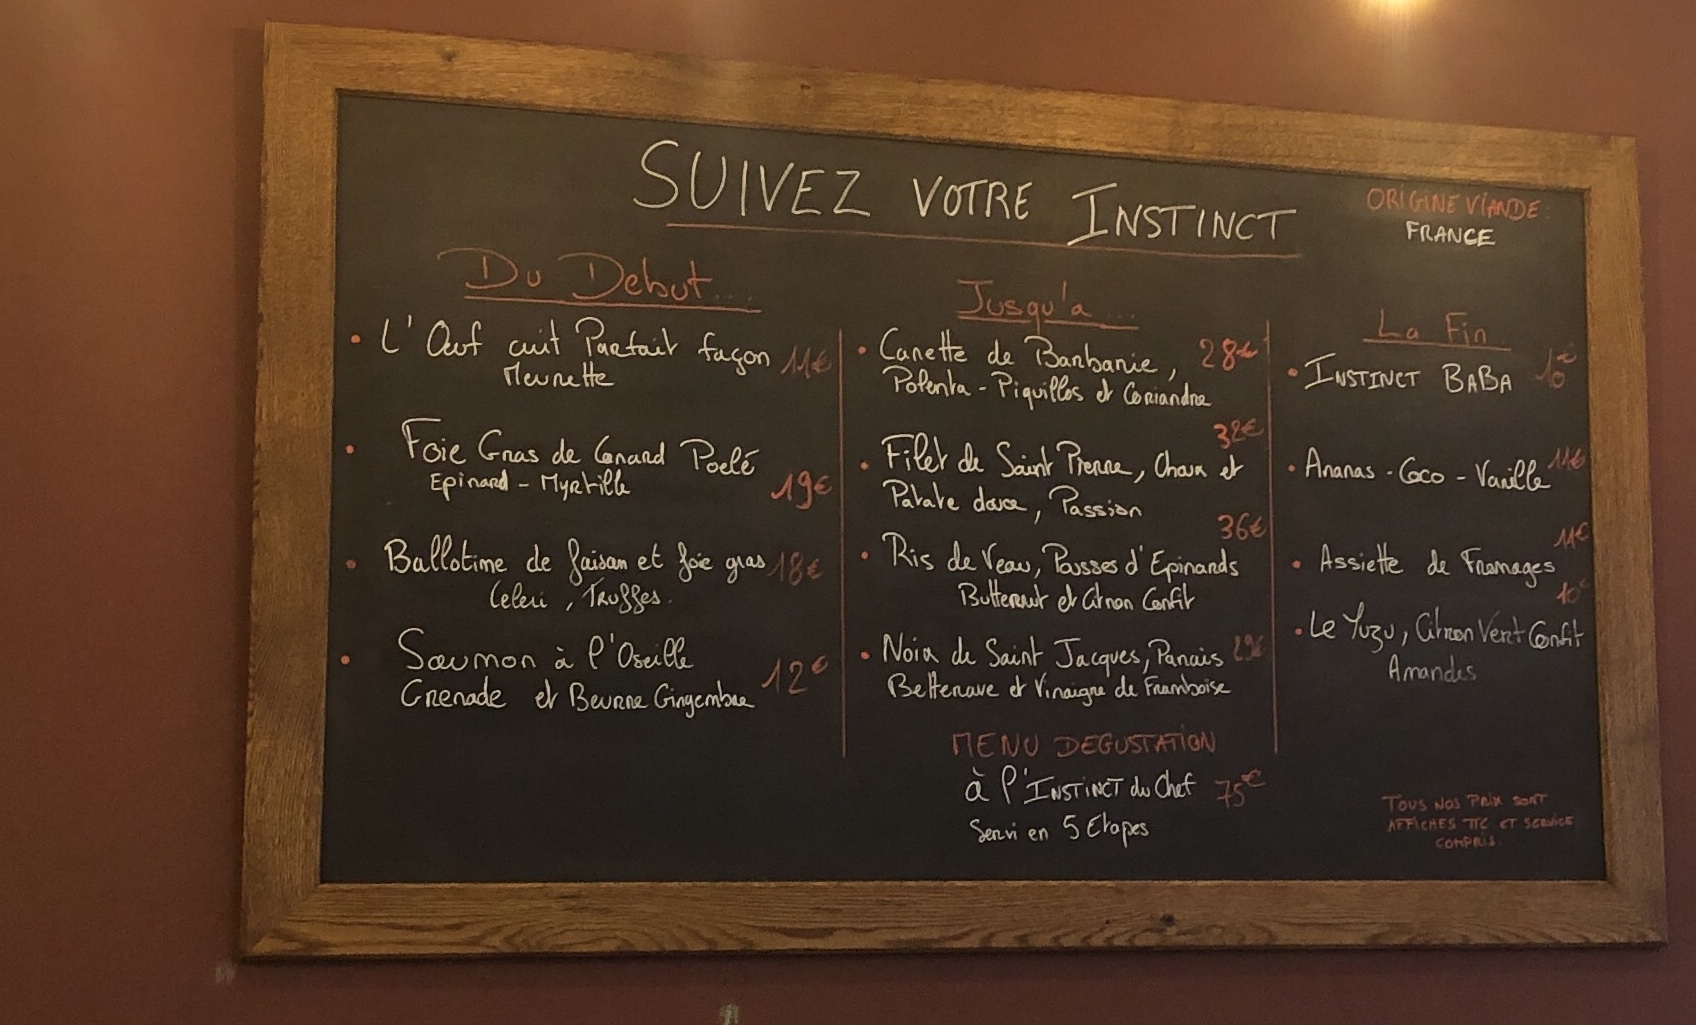 SUIVEZ VOTRE INSTINCT
ORIGINE VIANDE:
FRANCE
Du Debut...
• L'Œuf cuit Parfait façon 11€
Meurette
• Foie Gras de Canard Poelé
Epinard - Myrtille 19€
• Ballotine de faisan et foie gras 18€
Celeri, Truffes.
• Saumon à l'Oseille
Grenade et Beurre Gingembre 12€
Jusqu'a...
• Canette de Barbarie, 28€
Polenta - Piquillos et Coriandre
32€
• Filet de Saint Pierre, Choux et
Patate douce, Passion
36€
• Ris de Veau, Pousses d'Epinards
Butternut et Citron Confit
• Noix de Saint Jacques, Panais 29€
Betterave et Vinaigre de Framboise
MENU DEGUSTATION
à l'INSTINCT du Chef 75€
Servi en 5 Etapes
La Fin
• INSTINCT BABA 10€
• Ananas - Coco - Vanille 11€
11€
• Assiette de Fromages
10€
• Le Yuzu, Citron Vert Confit
Amandes
TOUS NOS PRIX SONT
AFFICHES TTC ET SERVICE
COMPRIS.